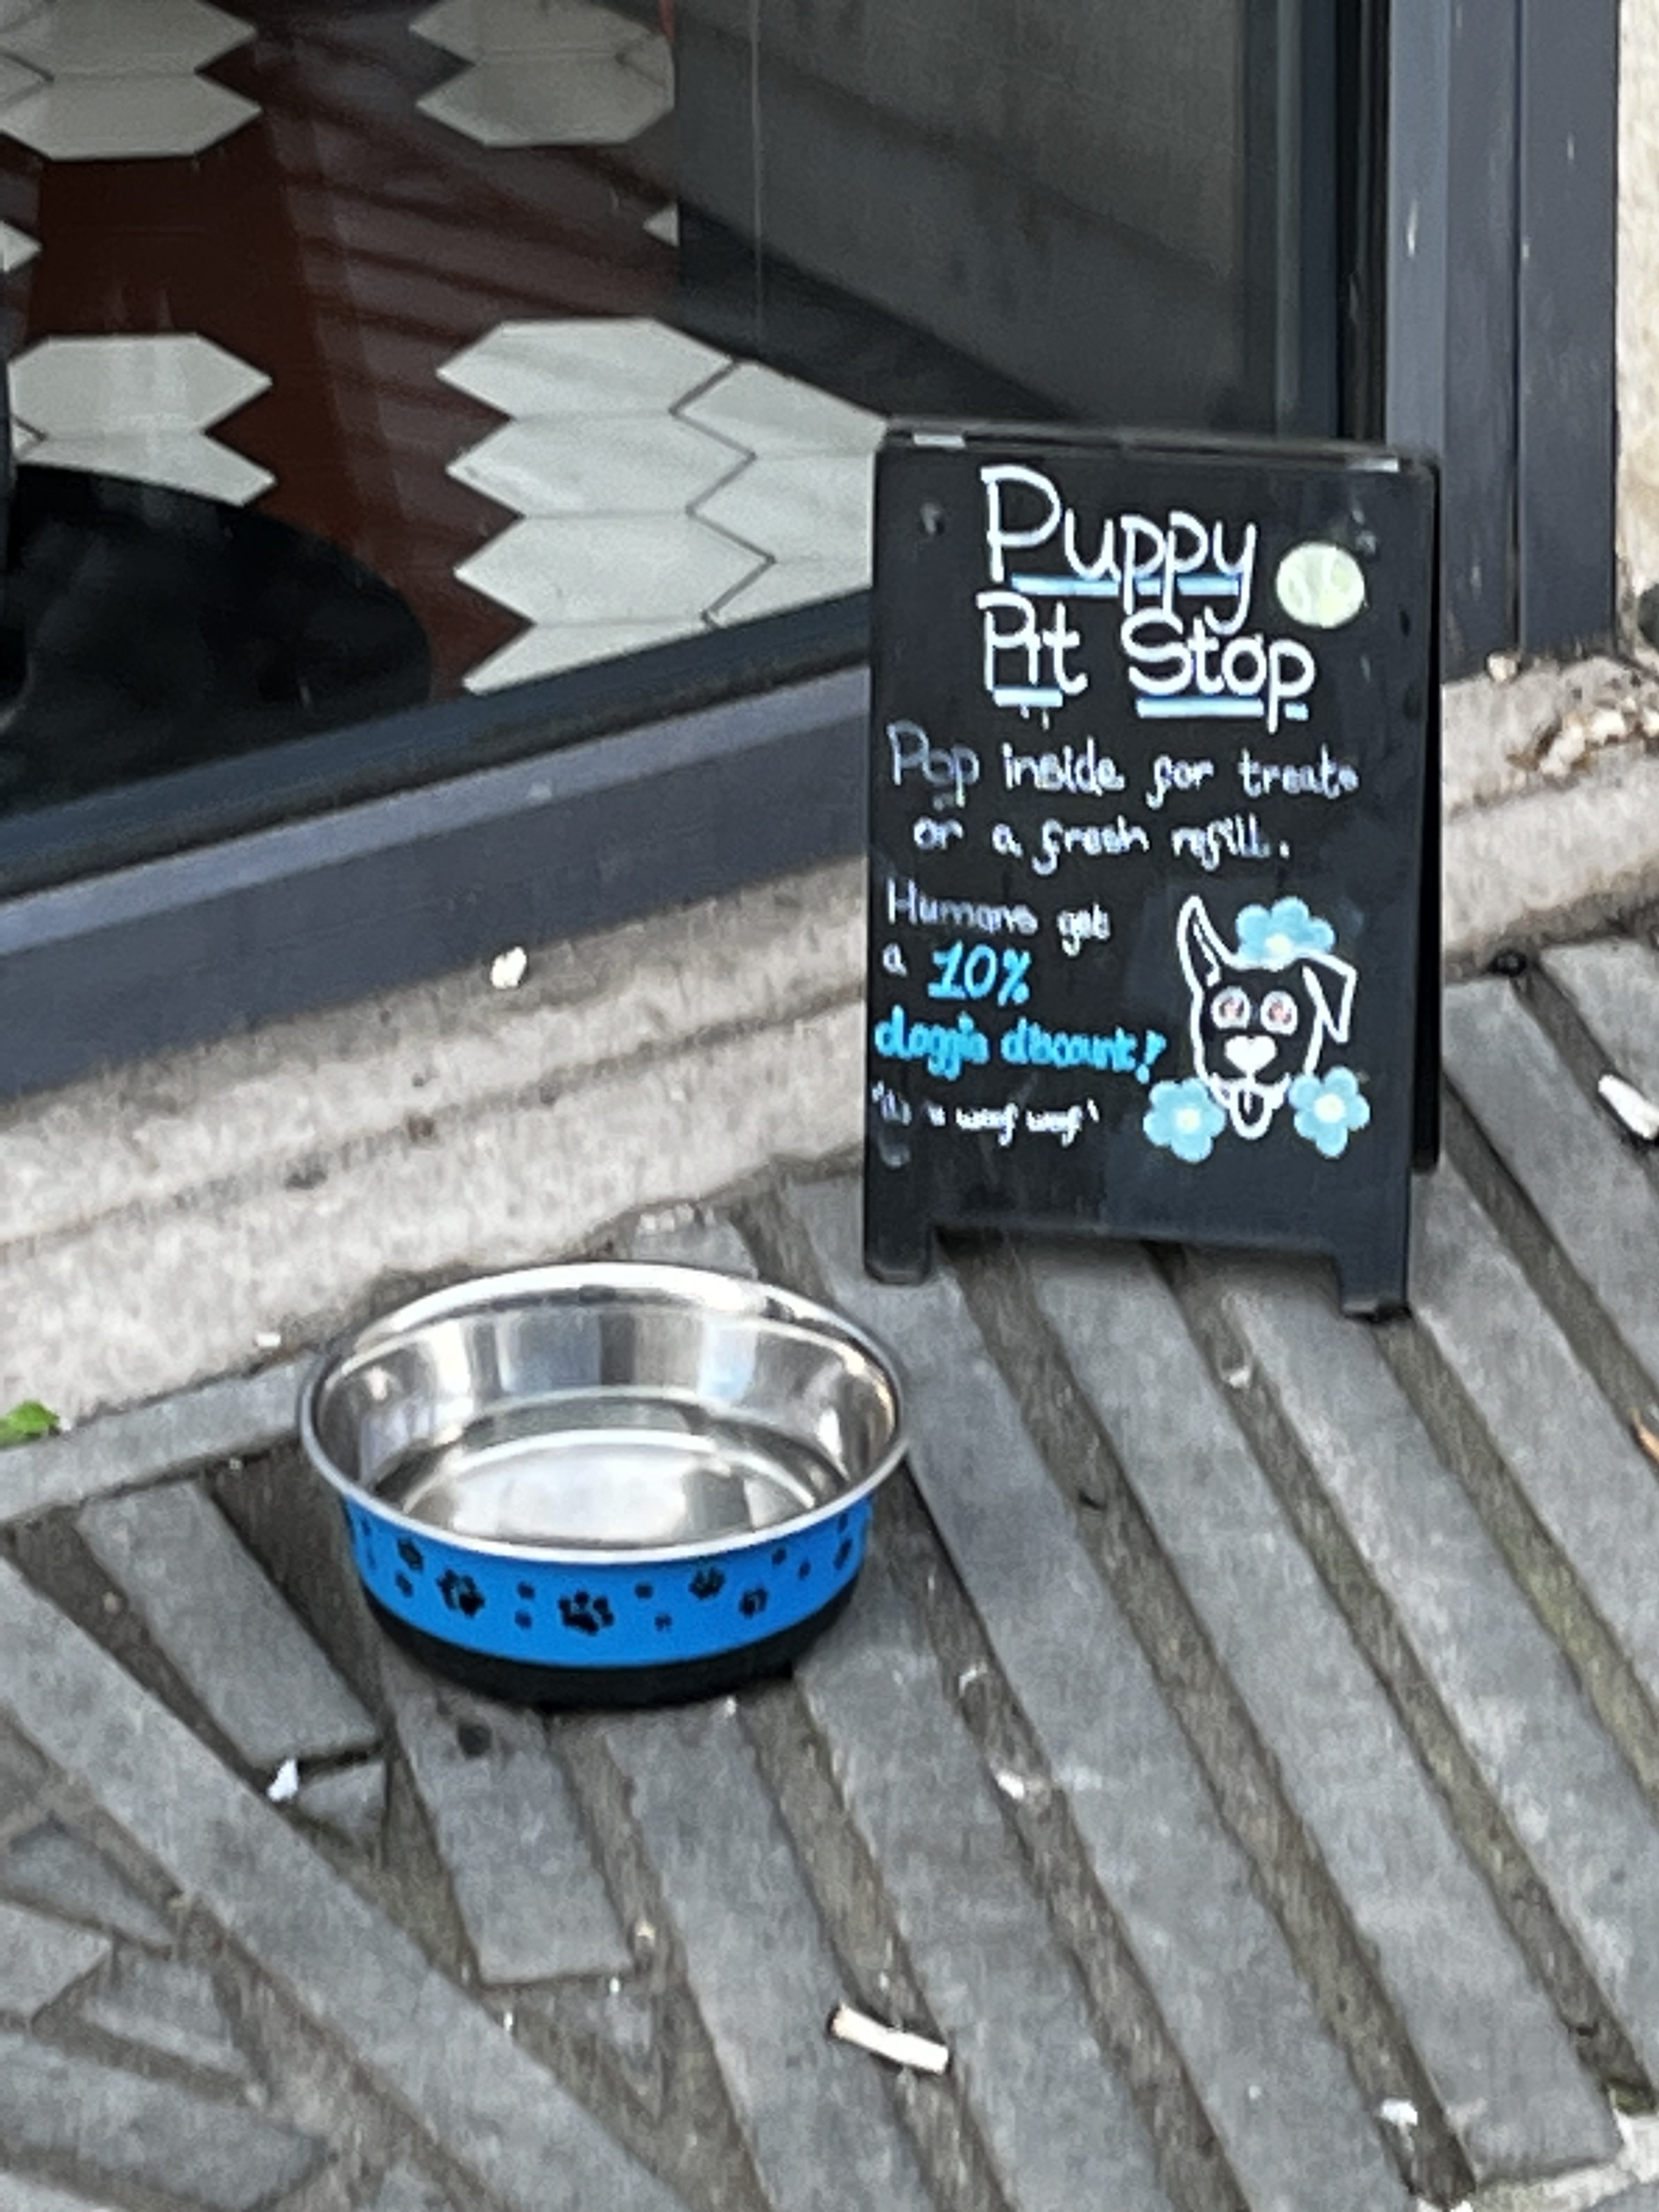 Puppy
Pit Stop
Pop inside for treats
or a fresh refill.
Humans get
a 10%
doggie discount!
woof woof